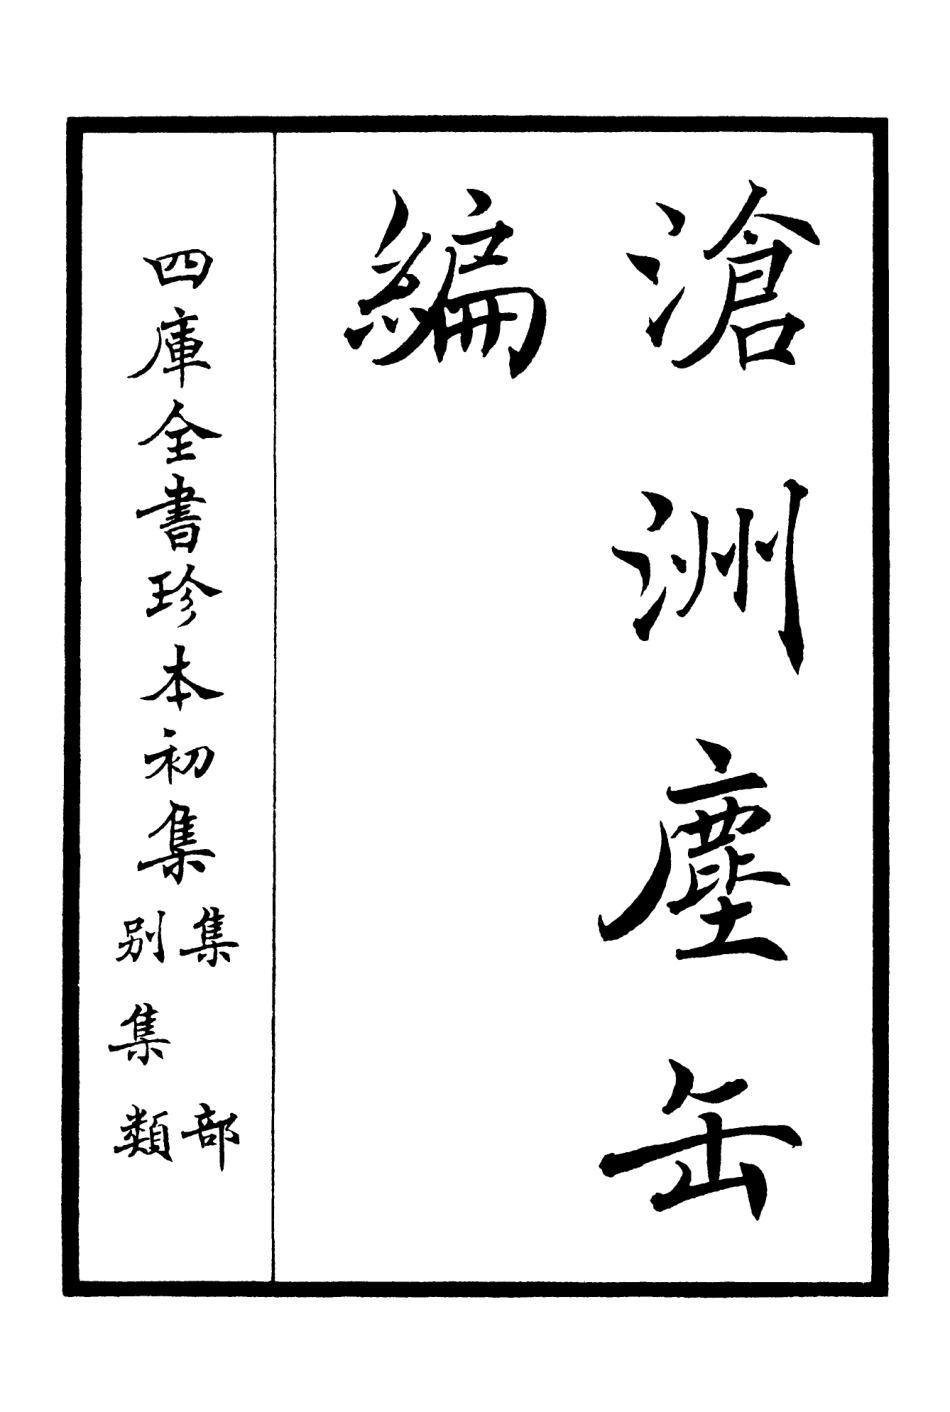 滄洲塵缶
編
四庫全書珍本初集
集部
別集類